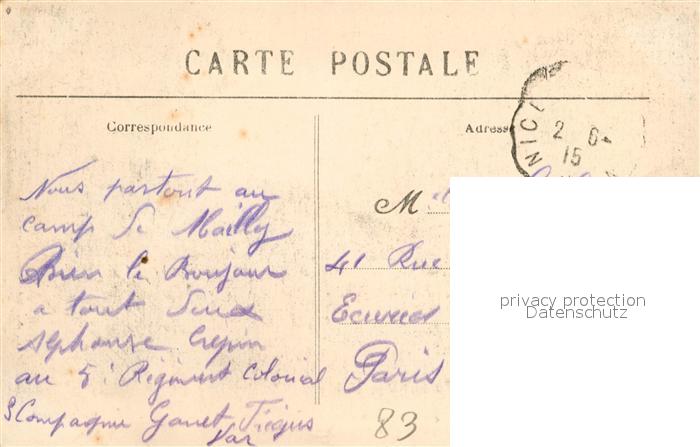 CARTE POSTALE
Correspondance
Adresse
NICE
2 6-
15
Nous partont au
camp de Mailly
Bien le Bonjour
a tout Deux
Alphonse Crepin
au 5e Régiment Colonial
Compagnie
Var
M
41 Rue
Ecuries
Paris
83
privacy protection
Datenschutz